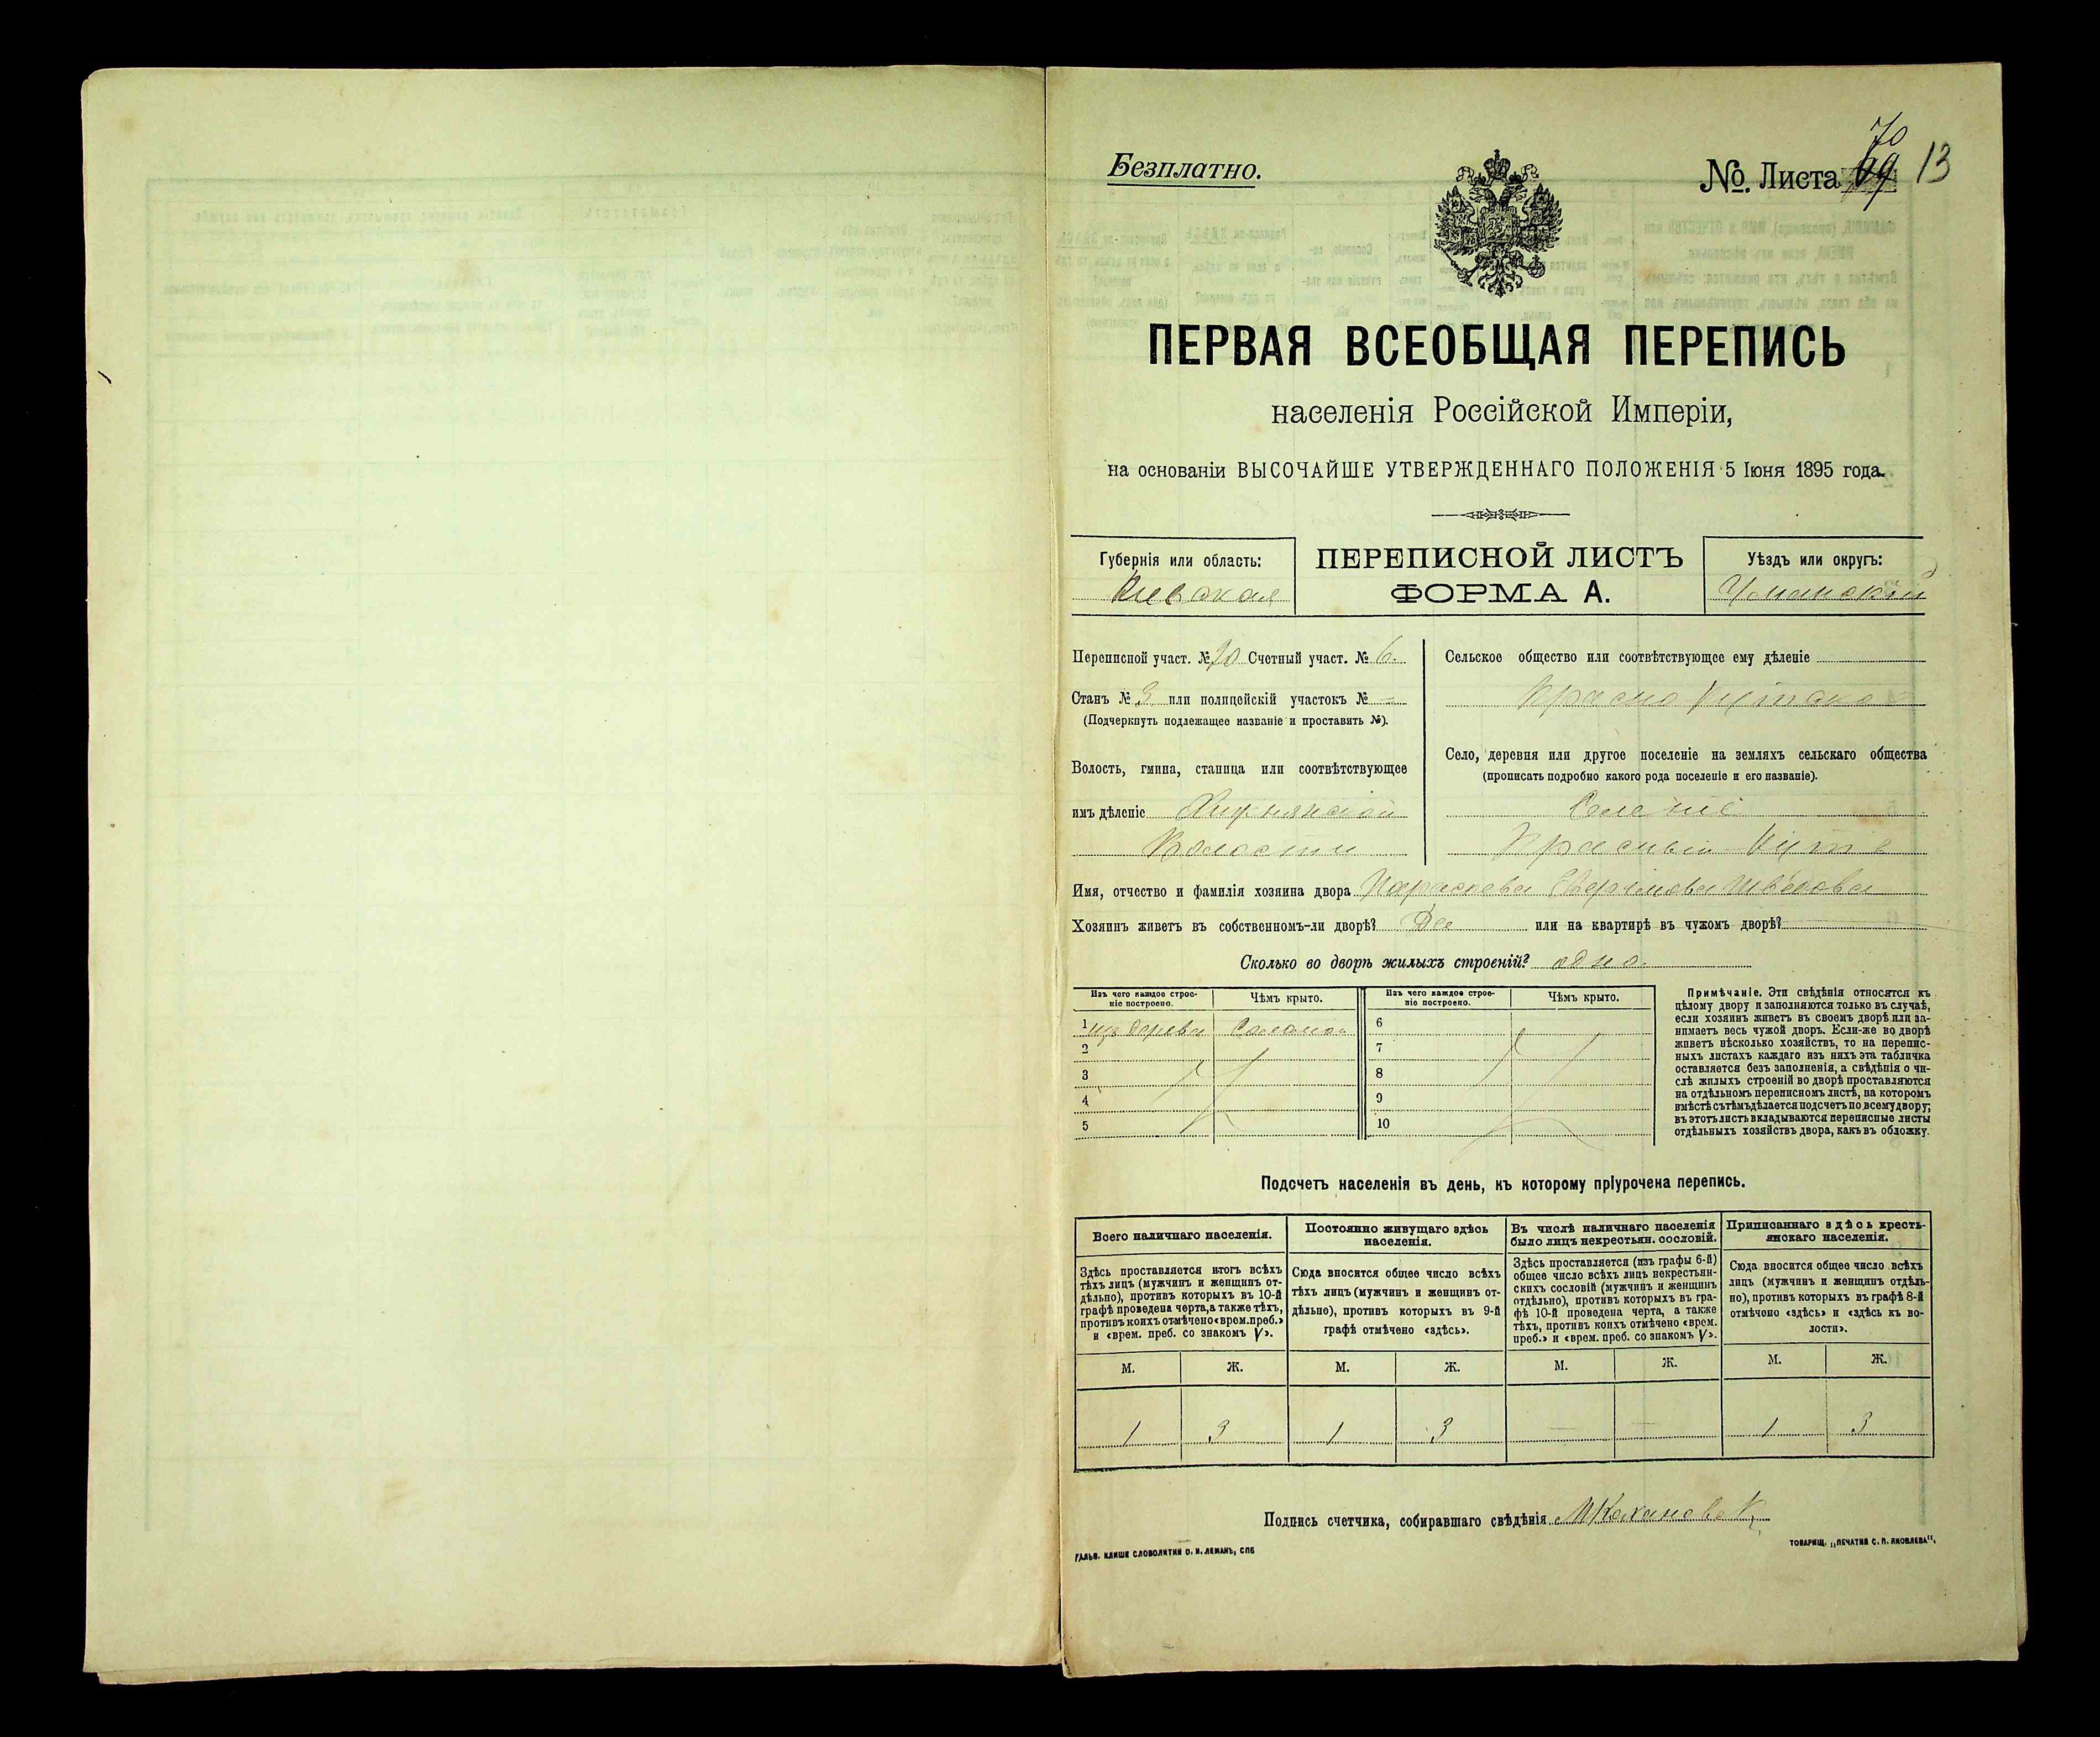 Безплатно.
No. Листа 69 70 13
ПЕРВАЯ ВСЕОБЩАЯ ПЕРЕПИСЬ
населенія Россійской Имперіи,
на основаніи ВЫСОЧАЙШЕ УТВЕРЖДЕННАГО ПОЛОЖЕНІЯ 5 Іюня 1895 года.
Губернія или область:
Кіевская
ПЕРЕПИСНОЙ ЛИСТЪ
ФОРМА А.
Уѣздъ или округъ:
Уманскій
Переписной участ. № 20 Счетный участ. № 6.
Станъ № 3 или полицейскій участокъ № –
(Подчеркнуть подлежащее названіе и проставить №).
Волость, гмина, станица или соотвѣтствующее
имъ дѣленіе
Волости
Сельское общество или соотвѣтствующее ему дѣленіе
Красно Кутское
Село, деревня или другое поселеніе на земляхъ сельскаго общества
(прописать подробно какого рода поселеніе и его названіе).
Селеніе
Красный Кутъ
Имя, отчество и фамилія хозяина двора Параскева Ефимова Шведова
Хозяинъ живетъ въ собственномъ-ли дворѣ? Да или на квартирѣ въ чужомъ дворѣ?
Сколько во дворѣ жилыхъ строеній? одно.
Изъ чего каждое строе-
ніе построено.
Чѣмъ крыто.
Изъ чего каждое строе-
ніе построено.
Чѣмъ крыто.
1 изъ дерева Соломой
2
3
4
5
6
7
8
9
10
Примѣчаніе. Эти свѣдѣнія относятся къ
цѣлому двору и заполняются только въ случаѣ,
если хозяинъ живетъ въ своемъ дворѣ или за-
нимаетъ весь чужой дворъ. Если-же во дворѣ
живетъ нѣсколько хозяйствъ, то на перепис-
ныхъ листахъ каждаго изъ нихъ эта табличка
оставляется безъ заполненія, а свѣдѣнія о чи-
слѣ жилыхъ строеній во дворѣ проставляются
на отдѣльномъ переписномъ листѣ, на которомъ
вмѣстѣ съ тѣмъ дѣлается подсчетъ по всему двору;
въ этотъ листъ вкладываются переписные листы
отдѣльныхъ хозяйствъ двора, какъ въ обложку.
Подсчетъ населенія въ день, къ которому пріурочена перепись.
Всего наличнаго населенія.
Здѣсь проставляется итогъ всѣхъ
тѣхъ лицъ (мужчинъ и женщинъ от-
дѣльно), противъ которыхъ въ 10-й
графѣ проведена черта, а также тѣхъ,
противъ коихъ отмѣчено «врем. преб.»
и «врем. преб. со знакомъ V».
Постоянно живущаго здѣсь
населенія.
Сюда вносится общее число всѣхъ
тѣхъ лицъ (мужчинъ и женщинъ от-
дѣльно), противъ которыхъ въ 9-й
графѣ отмѣчено «здѣсь».
Въ числѣ наличнаго населенія
было лицъ некрестьян. сословій.
Здѣсь проставляется (изъ графы 6-й)
общее число всѣхъ лицъ некрестьян-
скихъ сословій (мужчинъ и женщинъ
отдѣльно), противъ которыхъ въ гра-
фѣ 10-й проведена черта, а также
тѣхъ, противъ коихъ отмѣчено «врем.
преб.» и «врем. преб. со знакомъ V».
Приписаннаго здѣсь кресть-
янскаго населенія.
Сюда вносится общее число всѣхъ
лицъ (мужчинъ и женщинъ отдѣль-
но), противъ которыхъ въ графѣ 8-й
отмѣчено «здѣсь» и «здѣсь къ во-
лости».
М. Ж. М. Ж. М. Ж. М. Ж.
1 3 1 3 — — 1 3
Подпись счетчика, собиравшаго свѣдѣнія
ГАЛЬВ. КЛИШЕ СЛОВОЛИТНИ О. И. ЛЕМАНЪ, СПБ
ТОВАРИЩ. „ПЕЧАТНЯ С. П. ЯКОВЛЕВА“.